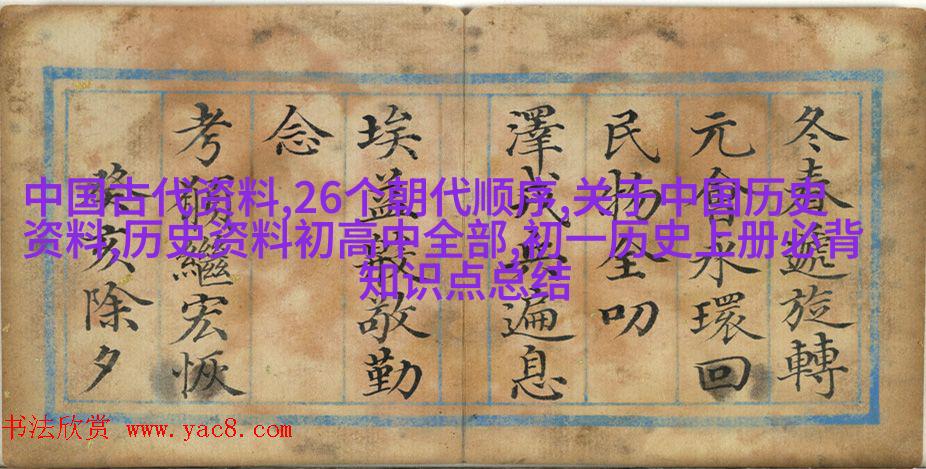 中国古代资料,26个朝代顺序,关于中国历史
资料,历史资料初高中全部,初一历史上册必背
知识点总结
冬春遞旋轉
元會環回
民物全叨
澤遍息
埃益敬勤
念
考繼宏恢
亥除夕
书法欣赏 www.yac8.com